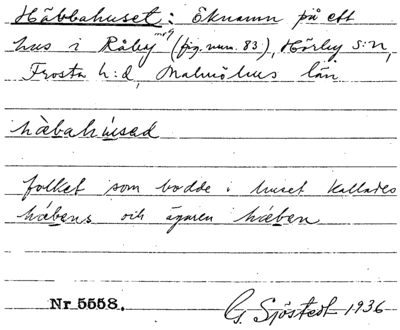 Häbbahuset: Öknamn på ett
hus i Råby (fig. num. 83), Hörby s:n,
Frosta h:d, Malmöhus län
hàbahúsad
folket som bodde i huset kallades
hábens och ägaren háben
Nr 5558. G. Sjöstedt 1936